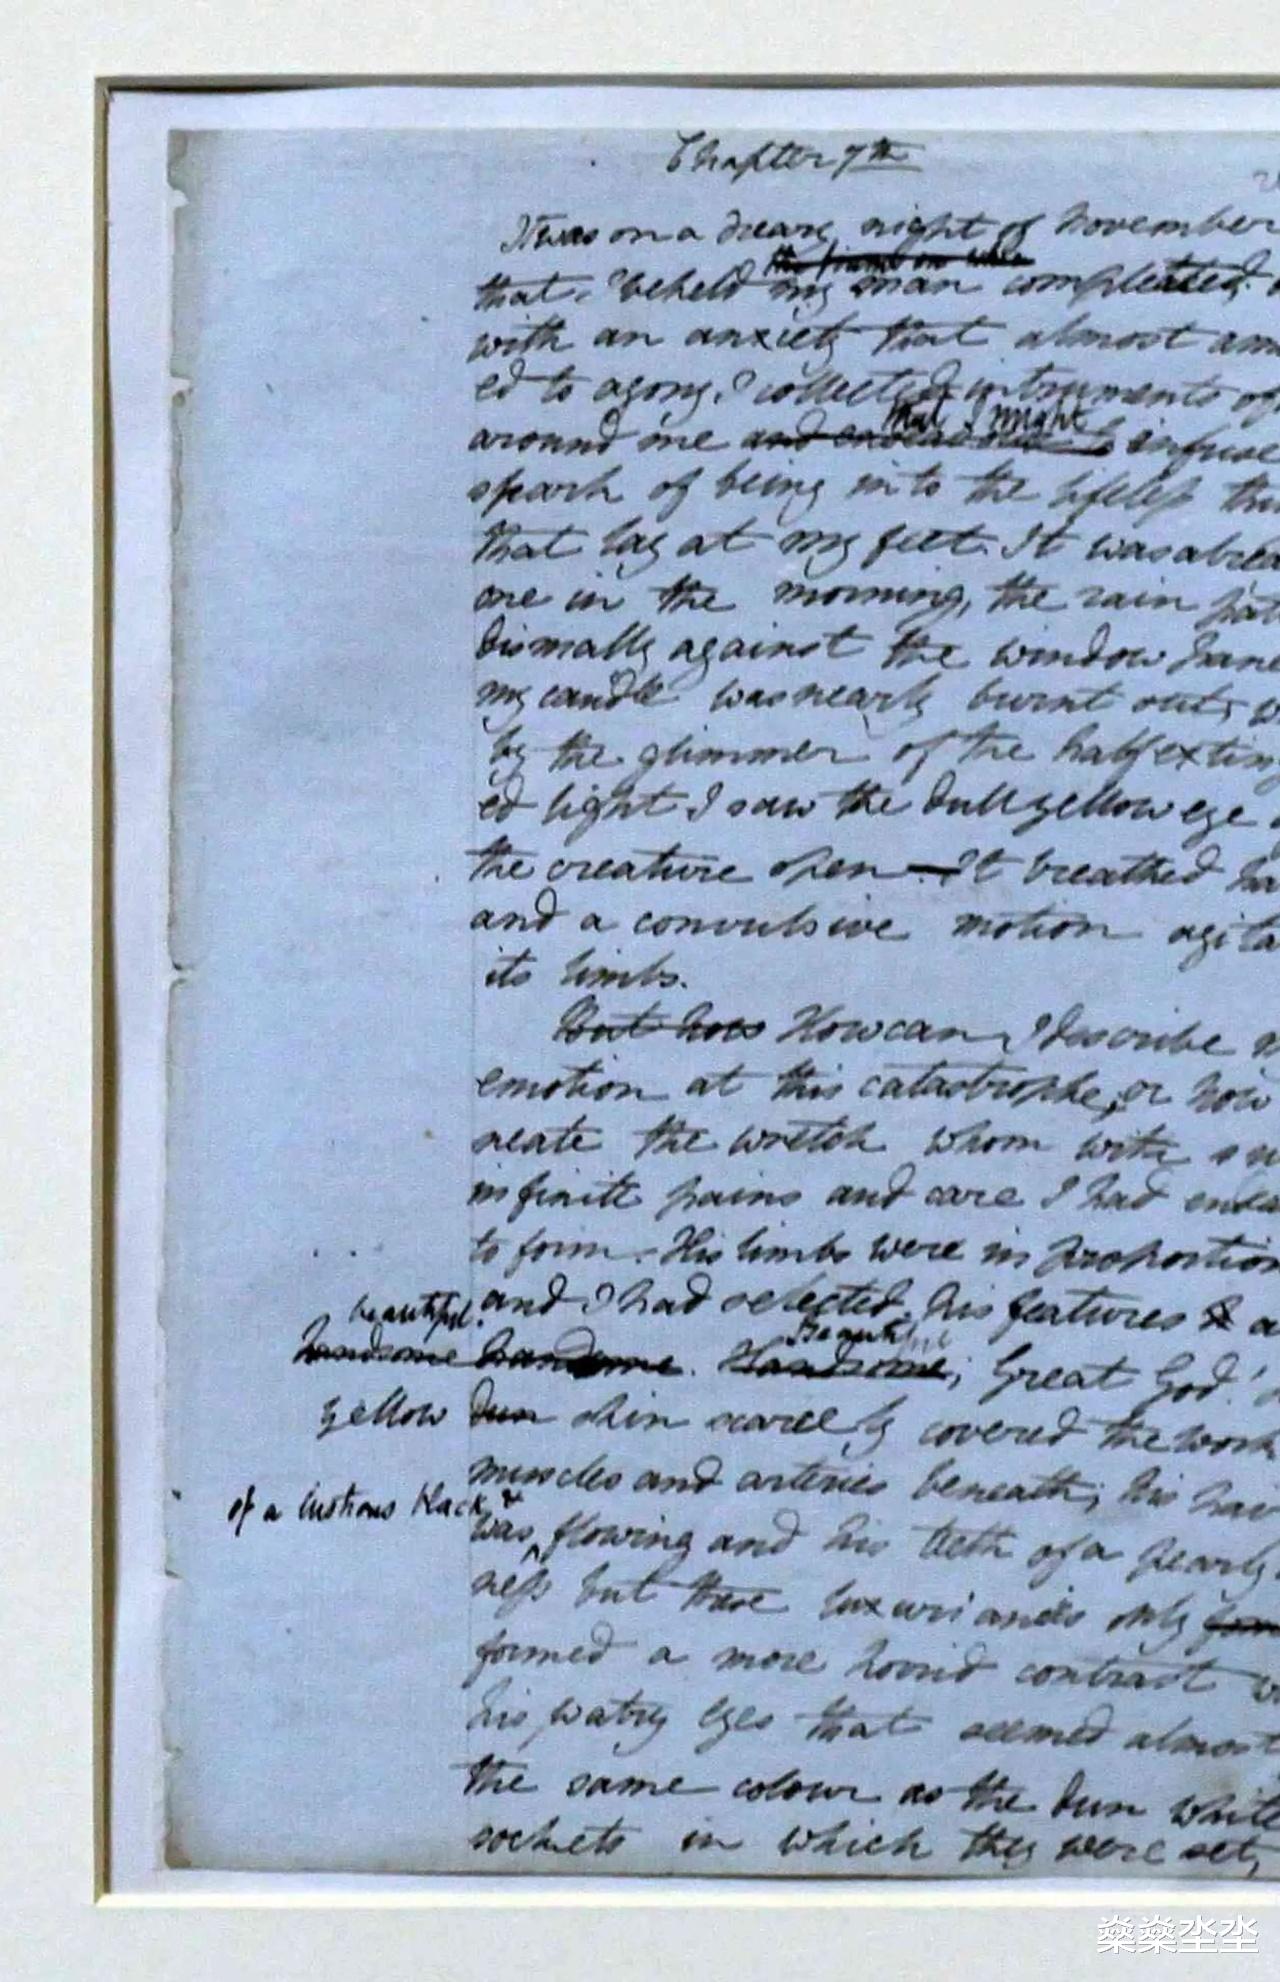 Chapter 7th
It was on a dreary night of November
that I beheld my man compleated,
with an anxiety that almost am
ed to agony, I collected instruments of
that I might
around me and endeavour to infuse
spark of being into the lifeless thi
that lay at my feet. It was alrea
one in the morning, the rain pat
dismally against the window pane
my candle was nearly burnt out,
by the glimmer of the half exting
ed light I saw the dull yellow eye
the creature open. It breathed ha
and a convulsive motion agita
its limbs.
But how How can I describe my
emotion at this catastrophe; or how
neate the wretch whom with su
infinite pains and care I had endea
to form. His limbs were in proportion
and I had selected his features & a
beautiful.
Beautiful
handsome handsome. Handsome; Great God!
yellow dun skin scarcely covered the work
muscles and arteries beneath; his hair
of a lustrous black &
was flowing and his teeth of a pearly
ness but these luxuriances only form
formed a more horrid contrast w
his watry eyes that seemed almost
the same colour as the dun white
sockets in which they were set,
燊燊坔坔